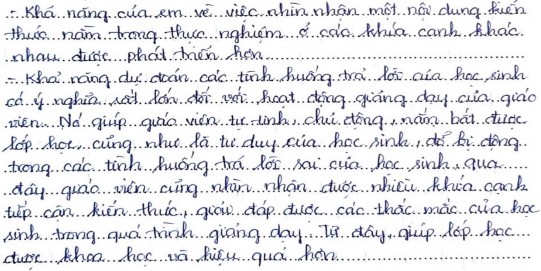 - Khả năng của em về việc nhìn nhận một nội dung kiến
thức nằm trong thực nghiệm ở các khía cạnh khác
nhau được phát triển hơn.
- Khả năng dự đoán các tình huống trả lời của học sinh
có ý nghĩa rất lớn đối với hoạt động giảng dạy của giáo
viên. Nó giúp giáo viên tự tinh, chủ động, nắm bắt được
lớp học, cũng như là tư duy của học sinh, đỡ bị động
trong các tình huống trả lời sai của học sinh, qua
đây giáo viên cũng nhìn nhận được nhiều khía cạnh
tiếp cận kiến thức, giải đáp được các thắc mắc của học
sinh trong quá trình giảng dạy. Từ đây, giúp lớp học
được khoa học và hiệu quả hơn.